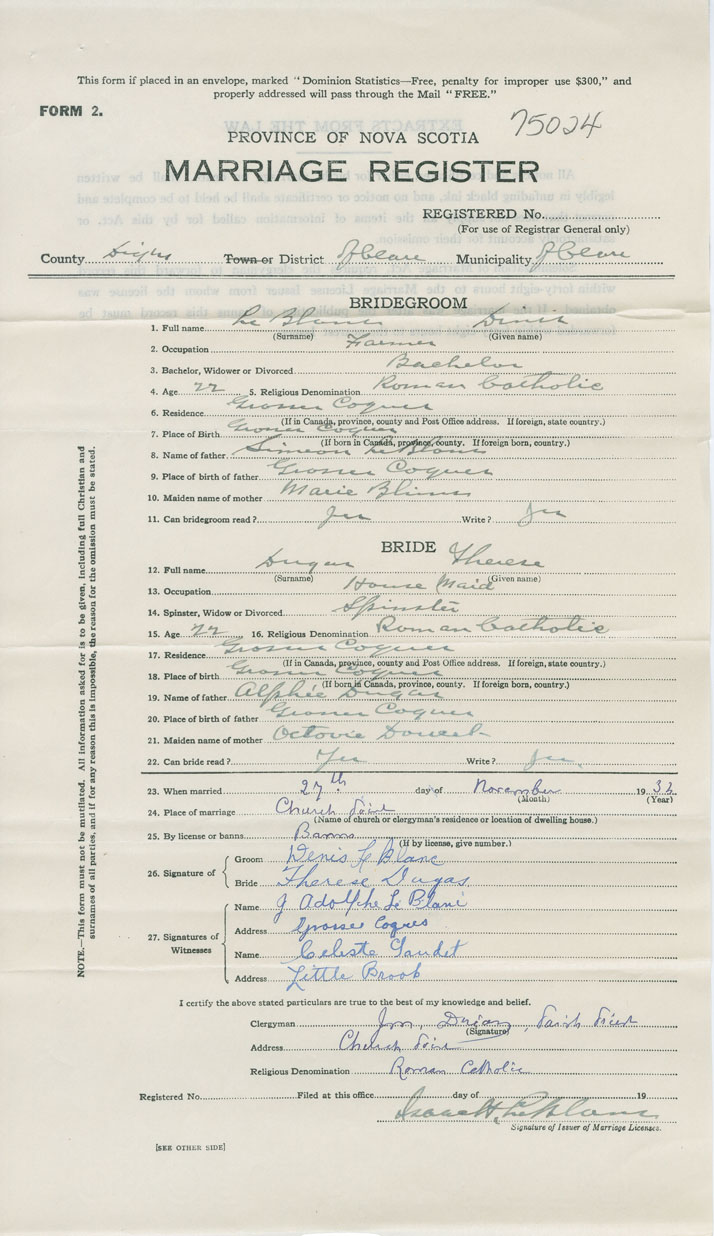 This form if placed in an envelope, marked "Dominion Statistics—Free, penalty for improper use $300," and
properly addressed will pass through the Mail "FREE."
FORM 2.
75024
PROVINCE OF NOVA SCOTIA
MARRIAGE REGISTER
REGISTERED No.
(For use of Registrar General only)
County Digby Town or District Clare Municipality Clare
BRIDEGROOM
1. Full name Le Blanc Denis
(Surname) (Given name)
2. Occupation Farmer
3. Bachelor, Widower or Divorced Bachelor
4. Age 22 5. Religious Denomination Roman Catholic
6. Residence Grosses Coques
(If in Canada, province, county and Post Office address. If foreign, state country.)
7. Place of Birth Grosses Coques
(If born in Canada, province, county. If foreign born, country.)
8. Name of father Simeon LeBlanc
9. Place of birth of father Grosses Coques
10. Maiden name of mother Marie
11. Can bridegroom read? Yes Write? Yes
BRIDE
12. Full name Dugas Therese
(Surname) (Given name)
13. Occupation House Maid
14. Spinster, Widow or Divorced Spinster
15. Age 22 16. Religious Denomination Roman Catholic
17. Residence Grosses Coques
(If in Canada, province, county and Post Office address. If foreign, state country.)
18. Place of Birth Grosses Coques
(If born in Canada, province, county. If foreign born, country.)
19. Name of father Alphie Dugas
20. Place of birth of father Grosses Coques
21. Maiden name of mother Octavie Doucet
22. Can bride read? Yes Write? Yes
23. When married 27th day of November 19
(Month) (Year)
24. Place of marriage Church Point
(Name of church or clergyman's residence or location of dwelling house.)
25. By license or banns Banns
(If by license, give number.)
26. Signature of
Groom Denis Le Blanc
Bride Therese Dugas
27. Signatures of Witnesses
Name J Adolphe Le Blanc
Address Grosses Coques
Name Celeste Gaudet
Address Little Brook
I certify the above stated particulars are true to the best of my knowledge and belief.
Clergyman Parish Priest
(Signature)
Address Church Point
Religious Denomination Roman Catholic
Registered No. Filed at this office day of 19
Isaac H. LeBlanc
Signature of Issuer of Marriage Licenses.
[SEE OTHER SIDE]
NOTE.—This form must not be mutilated. All information asked for is to be given, including full Christian and
surnames of all parties, and if for any reason this is impossible, the reason for the omission must be stated.